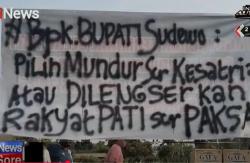 News
Bpk.BUPATI Sudewo :
PiliH MunduR Scr KesatriA
Atau DiLENgSeRkan
RakyatPATI scr PAKSA
News
Sore